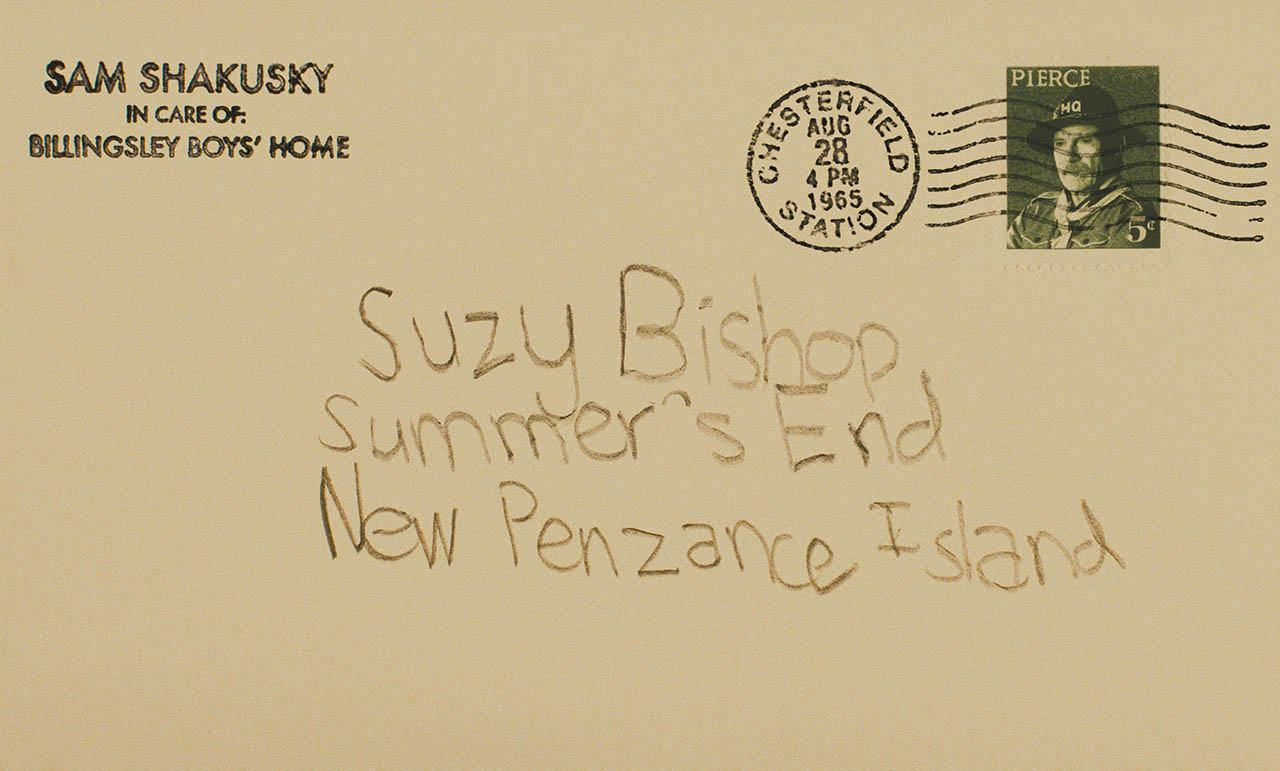 SAM SHAKUSKY
IN CARE OF:
BILLINGSLEY BOYS' HOME
CHESTERFIELD
AUG
28
4 PM
1965
STATION
PIERCE
HQ
5¢
Suzy Bishop
Summer's End
New Penzance Island